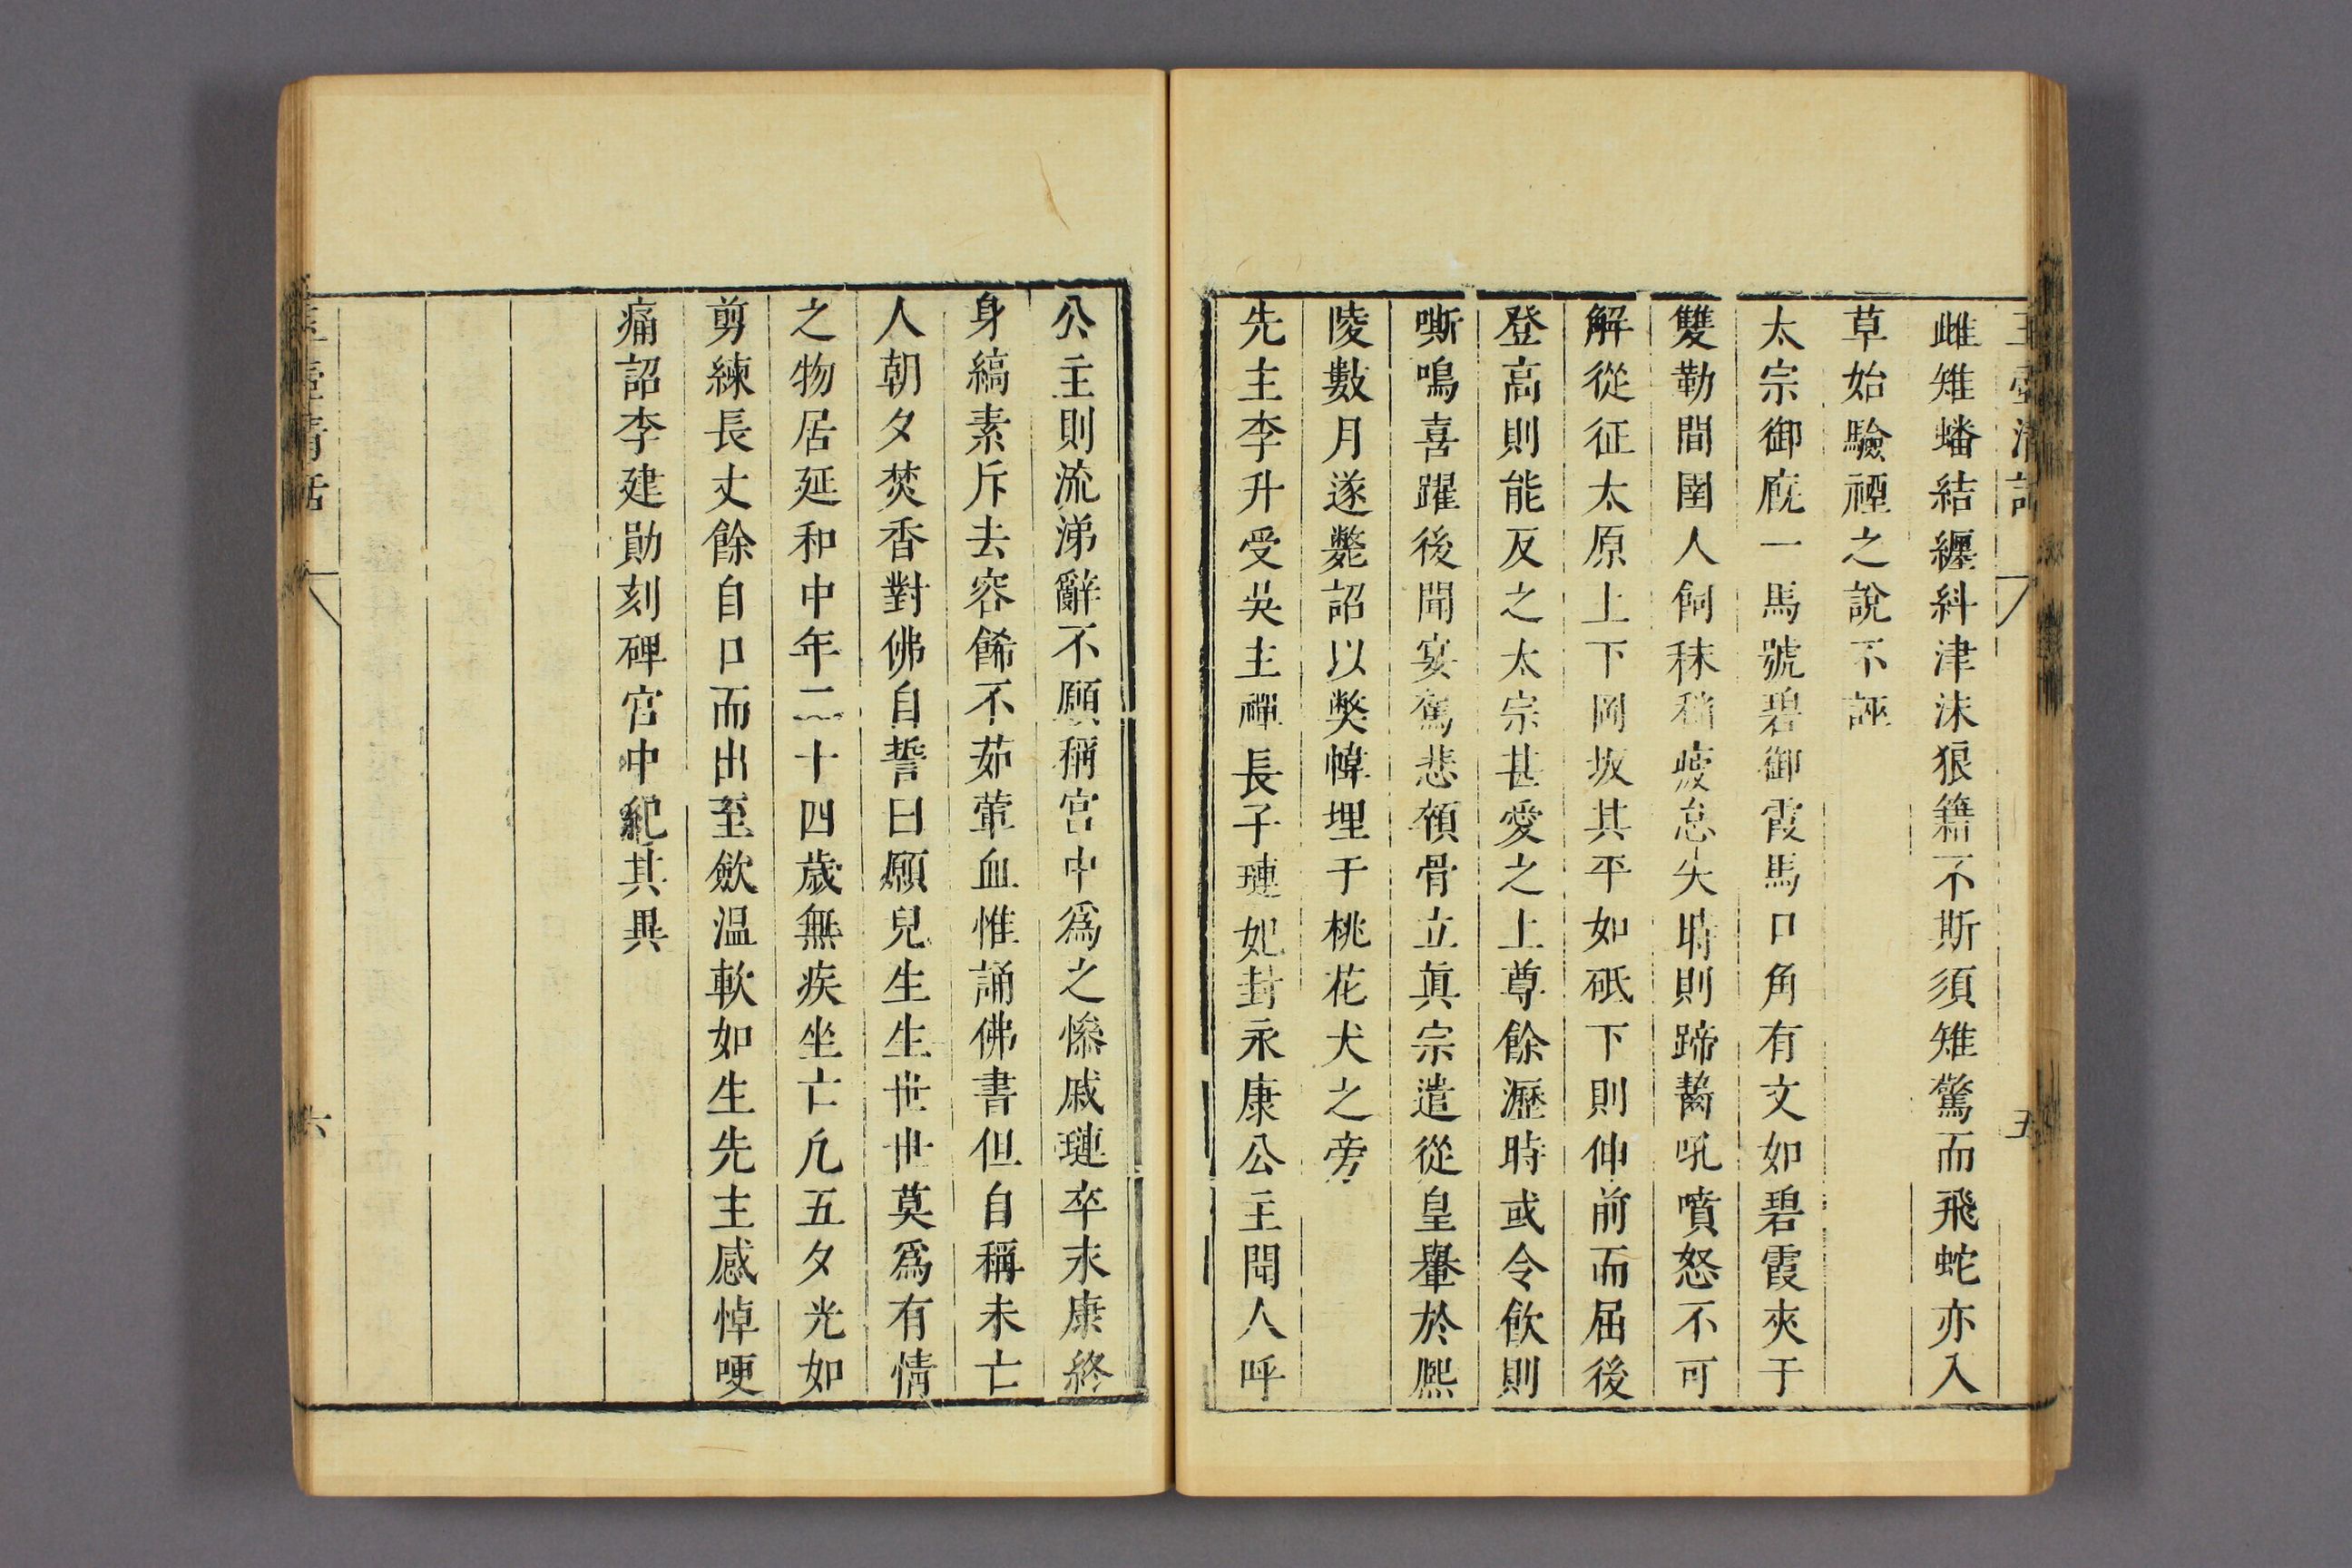 玉壺清話
五
雌雉蟠結纏糾津沫狼籍不斯須雉驚而飛蛇亦入
草始驗禋之說不誣
太宗御廐一馬號碧御霞馬口角有文如碧霞夾于
雙勒間圉人飼秣稍疲怠失時則蹄齧吼噴怒不可
解從征太原上下岡坂其平如砥下則伸前而屈後
登高則能反之太宗甚愛之上尊餘瀝時或令飲則
嘶鳴喜躍後聞宴駕悲顇骨立眞宗遣從皇轝於熙
陵數月遂斃詔以獘幃埋于桃花犬之旁
先主李升受吳主禪長子璉妃封永康公主聞人呼
公主則流涕辭不願稱宮中爲之慘戚璉卒永康終
身縞素斥去容餙不茹葷血惟誦佛書但自稱未亡
人朝夕焚香對佛自誓曰願兒生生世世莫爲有情
之物居延和中年二十四歲無疾坐亡凡五夕光如
剪練長丈餘自口而出至歛温軟如生先主感悼哽
痛詔李建勛刻碑宫中紀其異
壺清話
六